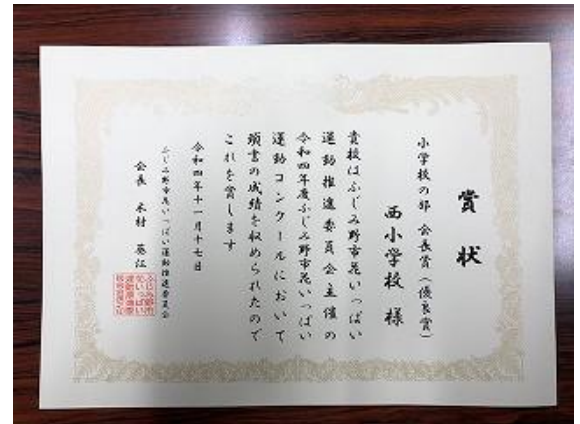 賞状
小学校の部 会長賞（優良賞）
西小学校 様
貴校はふじみ野市花いっぱい
運動推進委員会主催の
令和四年度ふじみ野市花いっぱい
運動コンクールにおいて
頭書の成績を収められたので
これを賞します
令和四年十一月十七日
ふじみ野市花いっぱい運動推進委員会
会長 木村